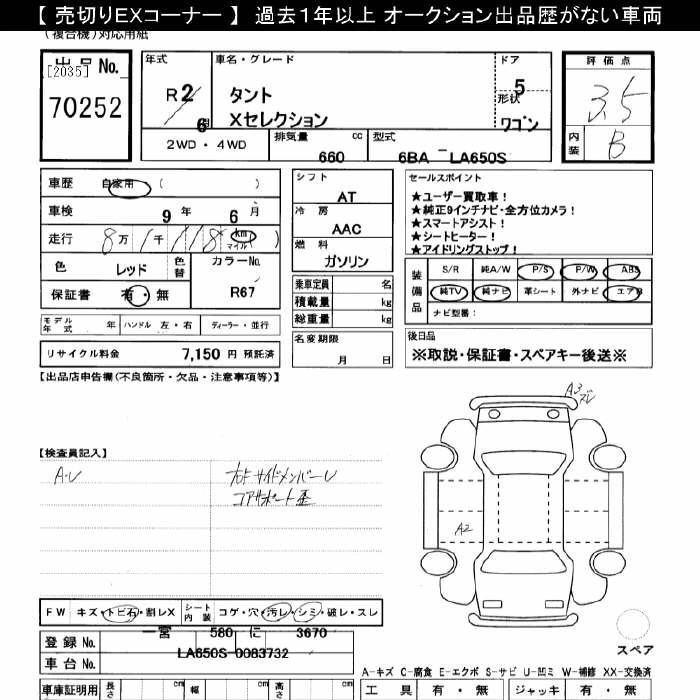 【 売切りEXコーナー 】 過去1年以上 オークション出品歴がない車両
(複合機)対応用紙
出品 No. [2035]
70252
年式
R2
6
車名・グレード
タント
Xセレクション
ドア
5
形状
ワゴン
評価点
3.5
内装
B
2WD・4WD
排気量
660
cc
型式
6BA LA650S
車歴 自家用 ( )
車検 9 年 6 月
走行 8万 1千 118 km マイル( )
色 レッド 色替
カラーNo.
R67
保証書 有・無
シフト
AT
冷房
AAC
燃料
ガソリン
乗車定員 名
積載量 kg
総重量 kg
セールスポイント
★ユーザー買取車!
★純正9インチナビ・全方位カメラ!
★スマートアシスト!
★シートヒーター!
★アイドリングストップ!
装備品
S/R 純A/W P/S P/W ABS
純TV 純ナビ 革シート 外ナビ エアB
ナビ型番:
モデル年式 年 ハンドル 左・右 ディーラー・並行
名変期限
月 日
後日品
※取説・保証書・スペアキー後送※
リサイクル料金 7,150 円 預託済
【出品店申告欄(不良箇所・欠品・注意事項等)】
A3
ズレ
【検査員記入】
A・U
右F サイドメンバーU
コアサポート歪
A2
FW キズ・トビ石・割レX シート内装 コゲ・穴・汚レ・シミ・破レ・スレ
登録 No. 一宮 580 に 3670
車台 No. LA650S-0083732
スペア
A-キズ C-腐食 E-エクボ S-サビ U-凹ミ W-補修 XX-交換済
車庫証明用 長さ cm 幅 cm 高さ cm
工具 有・無 ジャッキ 有・無